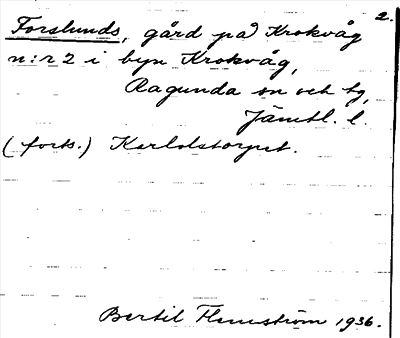 2.
Forslunds, gård på Krokvåg
n:r 2 i byn Krokvåg,
Ragunda sn och tg,
Jämtl. l.
(forts.) Karlolstorpet.
Bertil Flemström 1936.